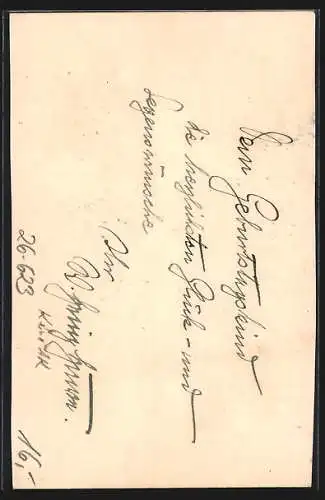 Dem Geburtstagskind
die herzlichsten Glück- und
Segenswünsche
Ihr
26-623
16,-